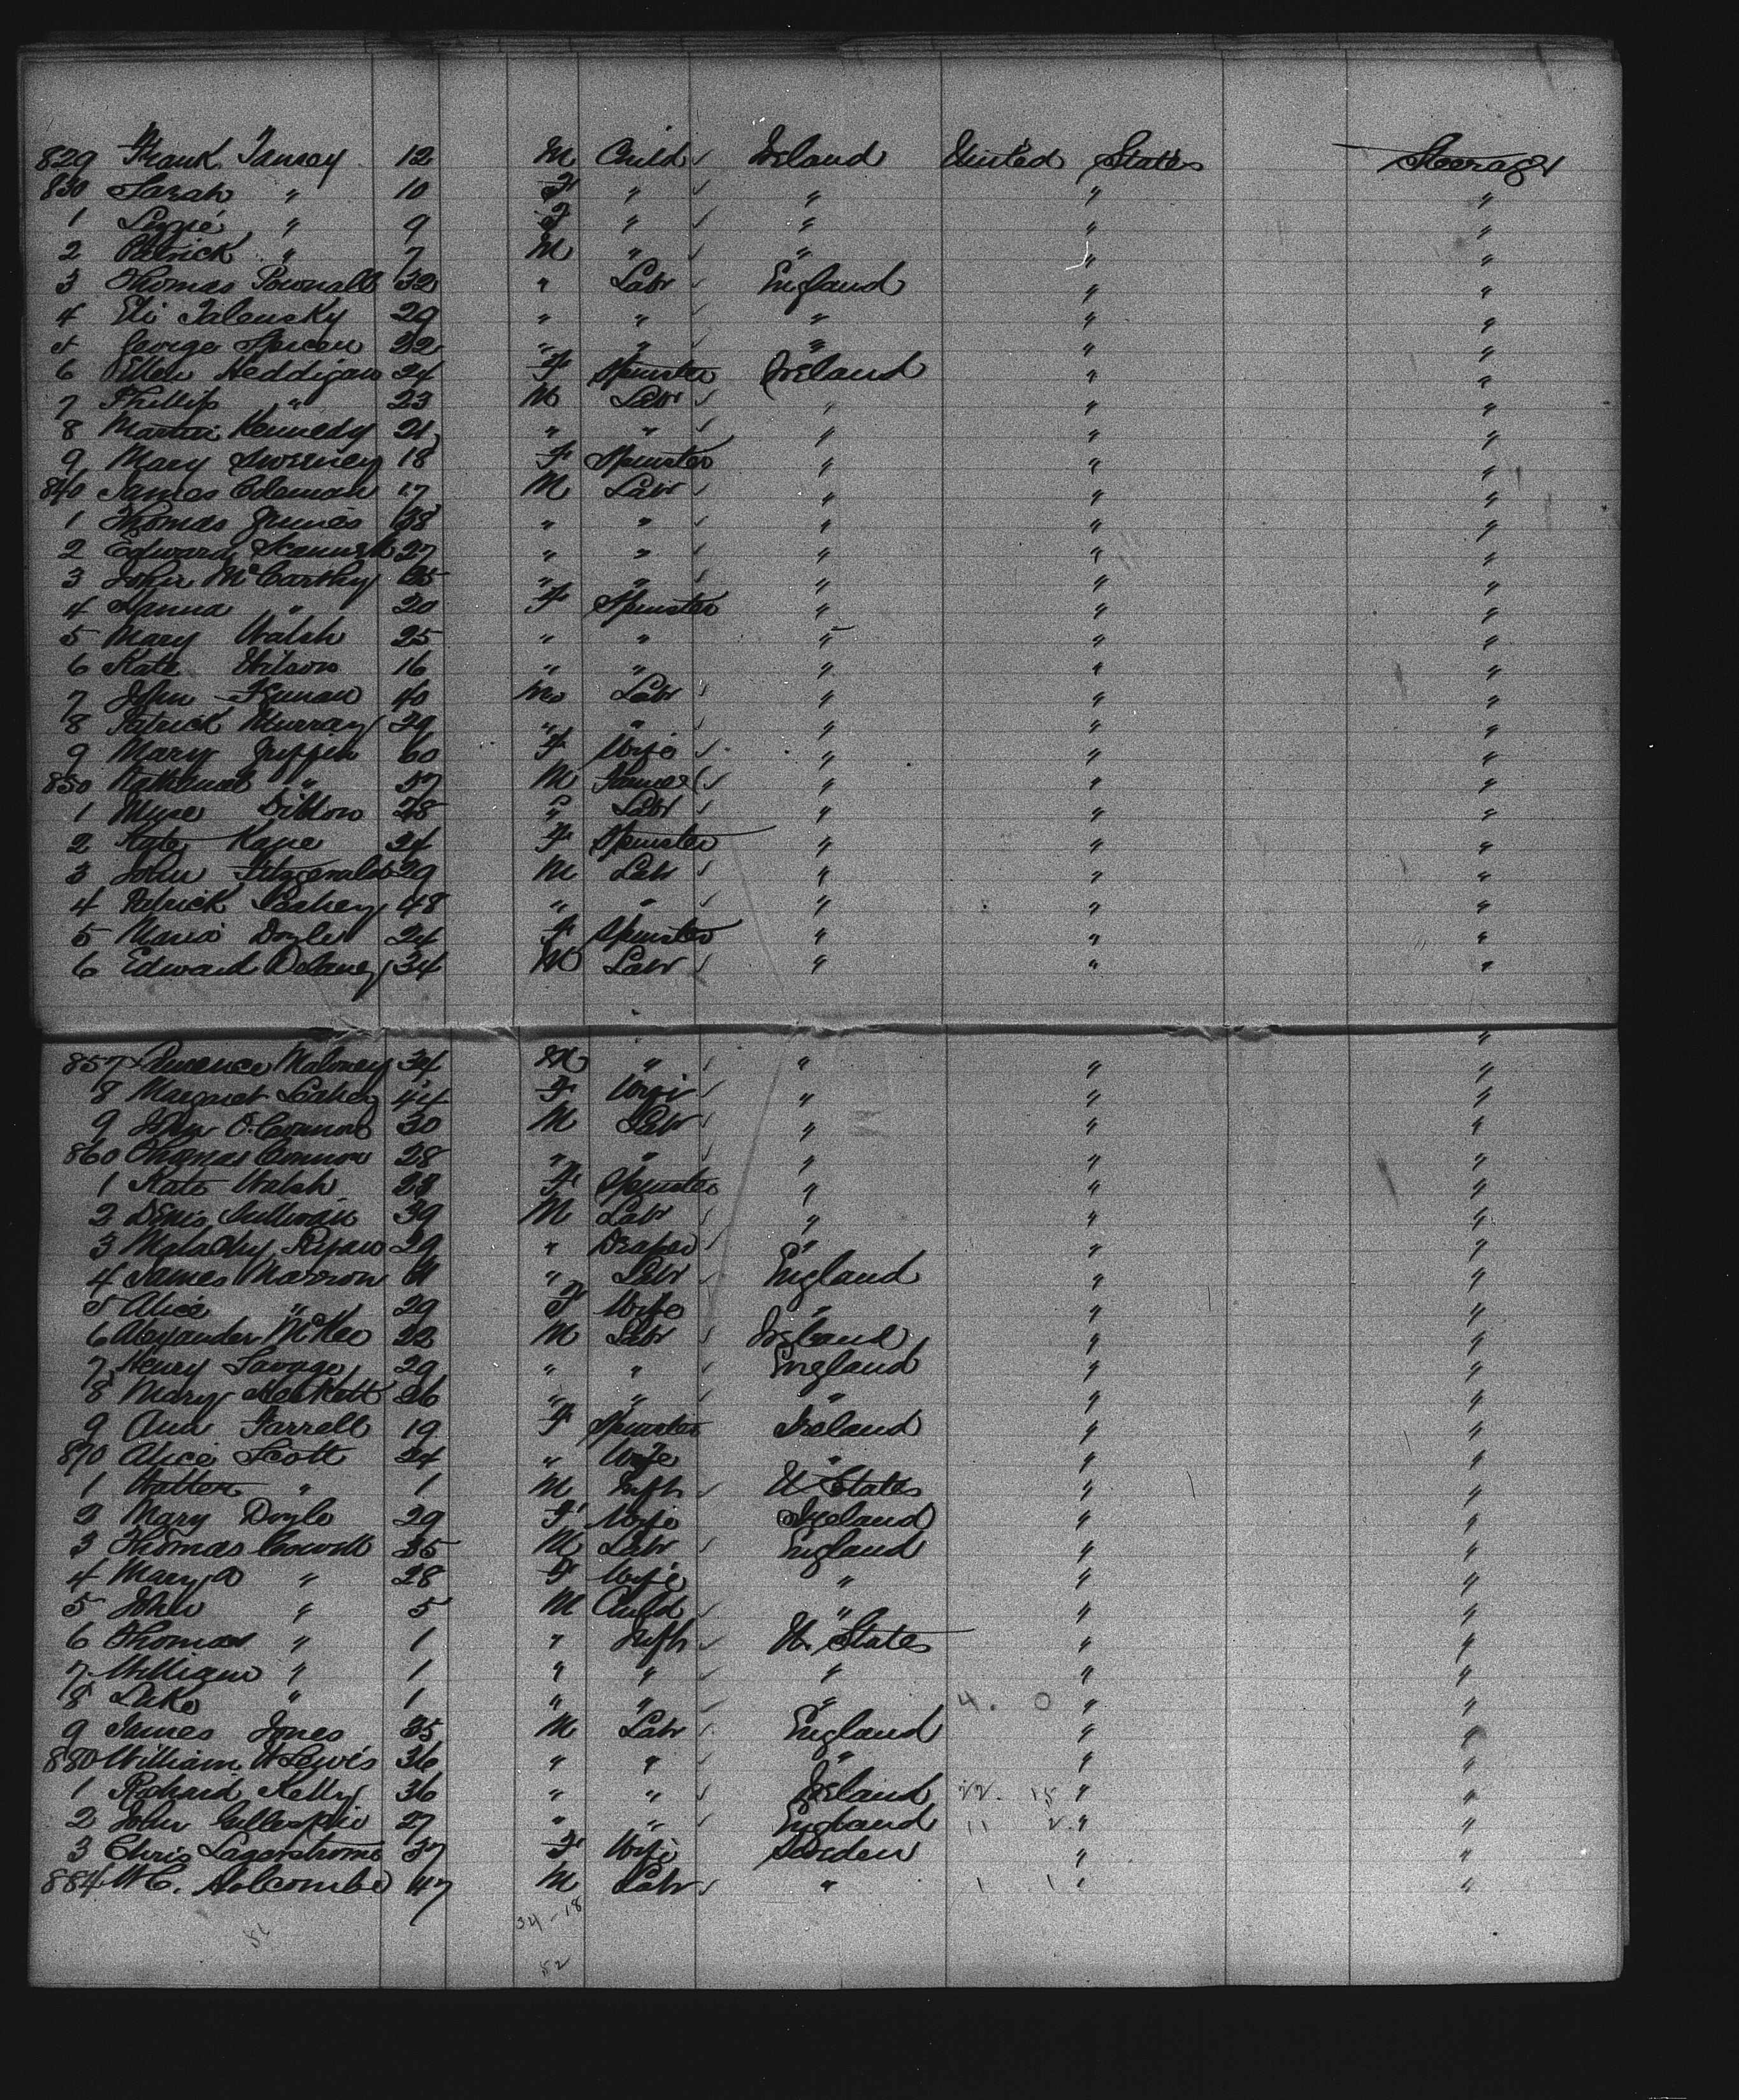 829 Frank Tansey 12 M Child ✓ Ireland United States Steerage
830 Sarah " 10 F " ✓ " " "
1 Lizzie " 9 F " ✓ " " "
2 Patrick " 7 M " ✓ " " "
3 Thomas Pownall 32 " Labr ✓ England " "
4 Eli Talensky 29 " " ✓ " " "
5 George Spicer 22 " " ✓ " " "
6 Ellen Heddigan 24 F Spinster Ireland " "
7 Phillip " 23 M Labr ✓ " " "
8 Martin Kennedy 21 " " ✓ " " "
9 Mary Sweeney 18 F Spinster " " "
840 James Coleman 17 M Labr ✓ " " "
1 Thomas 38 " " ✓ " " "
2 Edward 27 " " ✓ " " "
3 John McCarthy 35 " " ✓ " " "
4 Hanna " 20 F Spinster " " "
5 Mary Walsh 25 " " " " "
6 Kate Wilson 16 " " " " "
7 John 40 M Labr ✓ " " "
8 Patrick Murray 29 " " ✓ " " "
9 Mary Griffin 60 F Wife ✓ " " "
850 Nathanial " 57 M Farmer ✓ " " "
1 Dillon 28 " Labr ✓ " " "
2 Kate Kane 24 F Spinster " " "
3 John Fitzgerald 29 M Labr ✓ " " "
4 Patrick Leahey 48 " " ✓ " " "
5 Maria Doyle 24 F Spinster " " "
6 Edward Delaney 34 M Labr ✓ " " "
857 Lawrence Maloney 34 M " ✓ " " "
8 Margaret Leahey 44 F Wife ✓ " " "
9 John O'Connor 30 M Labr ✓ " " "
860 Thomas Connor 28 " " ✓ " " "
1 Kate Walsh 23 F Spinster " " "
2 Denis Sullivan 39 M Labr ✓ " " "
3 Malachy 29 " Draper ✓ " " "
4 James Marrow " Labr ✓ England " "
5 Alice " 29 F Wife " " "
6 Alexander McKee 22 M Labr ✓ Ireland " "
7 Henry Savage 29 " " ✓ England " "
8 Mary 26 " " ✓ " " "
9 Ann Farrell 19 F Spinster Ireland " "
870 Alice Scott 24 " Wife " " "
1 Walter " 1 M Inft ✓ U States " "
2 Mary Doyle 29 F Wife Ireland " "
3 Thomas Cowell 35 M Labr ✓ England " "
4 Mary A " 28 F Wife " " "
5 John " 5 M Child ✓ " " "
6 Thomas " 1 " Inft ✓ U. States " "
7 William " 1 " " ✓ " " "
8 Luke " 1 " " ✓ " 4. 0 " "
9 James Jones 35 M Labr England " "
880 William H Lewis 36 " " ✓ " " "
1 Richard Kelly 36 " " ✓ Ireland 22. 15 " "
2 John Gillespie 27 " " ✓ England 11 2. " "
3 Chris Lagerstrome 37 F Wife Sweden " "
884 W C. Holcombe 47 M Labr ✓ " 1 1 " "
34-18
52